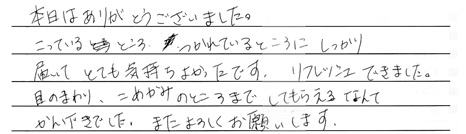 本日はありがとうございました。
こっているところ、つかれているところに しっかり
届いて とても気持ちよかったです。 リフレッシュできました。
目のまわり、こめかみのところまで してもらえるなんて
かんげきでした。 またよろしくお願いします。